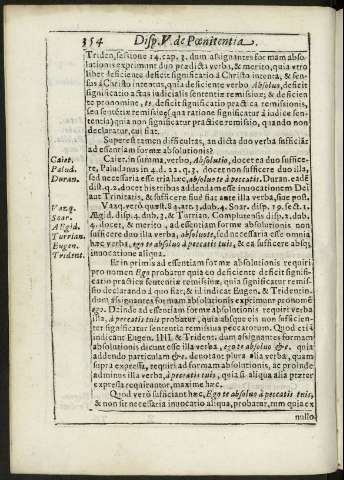 354 Disp. V. de Pœnitentia.
Triden. sessione 14. cap. 3. dum asignantes formam abso-
lutionis exprimunt duo prædicta verba, & merito, quia vero
liber deficiente deficit significatio á Christo intenta, & sen-
sus á Christo intentus, quia deficiente verbo Absoluo, deficit
significatio actus iudicialis sententiæ remissiuæ; & deficien
te pronomine, te, deficit significatio practica remissionis,
seu sententiæ remissiuæ (qua ratione significatur à iudice sen-
tentia) quia non significatur practice remissio, quando non
declaratur, cui fiat.
Superest tamen difficultas, an dicta duo verba sufficiāt
ad essentiam formæ absolutionis?
Caiet. Caiet. in summa, verbo, Absolutio, docet ea duo suffice-
Palud. re, Paludanus in 4. d. 22. q. 3. docet non sufficere duo illa,
Duran. sed necessaria esse tria hæc, absoluo te à peccatis. Duran. eadē
dist. q. 2. docet his tribus addendam esse inuocationem Dei
aut Trinitatis, & sufficere siue fiat ante illa verba, siue post.
Vazq. Vazq. verò quæst. 84. art. 3. dub. 4. Soar. disp. 19. sect. 1.
Soar. Ægid. disp. 4. dub. 3. & Turrian. Complutensis disp. 2. dub.
AEgid. 4. docet, & merito, ad essentiam formæ absolutionis non
Turrian. sufficere duo illa verba, absoluo te, sed necessaria esse omnia
Eugen. hæc verba, ego te absoluo à peccatis tuis, & ea sufficere absq;
Trident. inuocatione aliqua.
Et in primis ad essentiam formæ absolutionis requiri
pro nomen Ego probatur quia eo deficiente deficit signifi-
catio practica sententiæ remissiuæ, quia significatur remis-
sio declarando á quo fiat; & id indicat Eugen. & Tridentin.
dum assignantes formam absolutionis exprimunt pronomē
ego. Deinde ad essentiam formæ absolutionis requiri verba
illa, à peccatis tuis probatur, quia absque eis non sufficien-
ter significatur sententia remissiua peccatorum. Quod etiā
indicant Eugen. IIII. & Trident. dum assignantes formam
absolutionis dicunt esse illa verba, ego te absoluo &c.
addendo particulam &c. denotant plura alia verba, quam
supra expressa, requiri ad formam absolutionis, ac proinde
ad minus illa verba, à peccatis tuis, quia si aliqua alia præter
expressa requirantur, maxime hæc.
Quod verò sufficiant hæc, Ego te absoluo à peccatis tuis,
& non sit necessaria inuocatio aliqua, probatur, tum quia ex
nullo